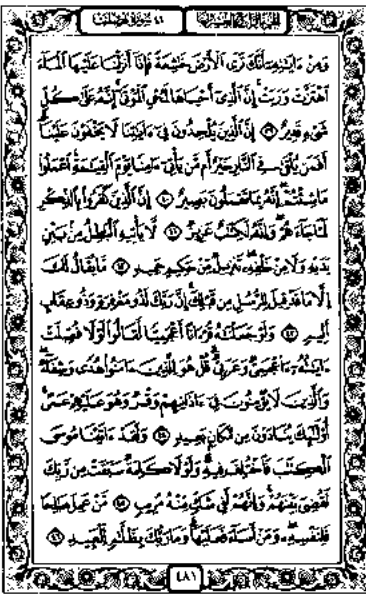 الجزء الرابع والعشرون ٤١ سورة فصلت
وَمِنْ ءَايَٰتِهِۦٓ أَنَّكَ تَرَى ٱلْأَرْضَ خَٰشِعَةً فَإِذَآ أَنزَلْنَا عَلَيْهَا ٱلْمَآءَ
ٱهْتَزَّتْ وَرَبَتْ إِنَّ ٱلَّذِىٓ أَحْيَاهَا لَمُحْىِ ٱلْمَوْتَىٰٓ إِنَّهُۥ عَلَىٰ كُلِّ
شَىْءٍ قَدِيرٌ ٣٩ إِنَّ ٱلَّذِينَ يُلْحِدُونَ فِىٓ ءَايَٰتِنَا لَا يَخْفَوْنَ عَلَيْنَآ
أَفَمَن يُلْقَىٰ فِى ٱلنَّارِ خَيْرٌ أَم مَّن يَأْتِىٓ ءَامِنًا يَوْمَ ٱلْقِيَٰمَةِ ٱعْمَلُوا۟
مَا شِئْتُمْ إِنَّهُۥ بِمَا تَعْمَلُونَ بَصِيرٌ ٤٠ إِنَّ ٱلَّذِينَ كَفَرُوا۟ بِٱلذِّكْرِ
لَمَّا جَآءَهُمْ وَإِنَّهُۥ لَكِتَٰبٌ عَزِيزٌ ٤١ لَّا يَأْتِيهِ ٱلْبَٰطِلُ مِنۢ بَيْنِ
يَدَيْهِ وَلَا مِنْ خَلْفِهِۦ تَنزِيلٌ مِّنْ حَكِيمٍ حَمِيدٍ ٤٢ مَّا يُقَالُ لَكَ
إِلَّا مَا قَدْ قِيلَ لِلرُّسُلِ مِن قَبْلِكَ إِنَّ رَبَّكَ لَذُو مَغْفِرَةٍ وَذُو عِقَابٍ
أَلِيمٍ ٤٣ وَلَوْ جَعَلْنَٰهُ قُرْءَانًا أَعْجَمِيًّا لَّقَالُوا۟ لَوْلَا فُصِّلَتْ
ءَايَٰتُهُۥٓ ءَا۬عْجَمِىٌّ وَعَرَبِىٌّ قُلْ هُوَ لِلَّذِينَ ءَامَنُوا۟ هُدًى وَشِفَآءٌ
وَٱلَّذِينَ لَا يُؤْمِنُونَ فِىٓ ءَاذَانِهِمْ وَقْرٌ وَهُوَ عَلَيْهِمْ عَمًى
أُو۟لَٰٓئِكَ يُنَادَوْنَ مِن مَّكَانٍۭ بَعِيدٍ ٤٤ وَلَقَدْ ءَاتَيْنَا مُوسَى
ٱلْكِتَٰبَ فَٱخْتُلِفَ فِيهِ وَلَوْلَا كَلِمَةٌ سَبَقَتْ مِن رَّبِّكَ
لَقُضِىَ بَيْنَهُمْ وَإِنَّهُمْ لَفِى شَكٍّ مِّنْهُ مُرِيبٍ ٤٥ مَّنْ عَمِلَ صَٰلِحًا
فَلِنَفْسِهِۦ وَمَنْ أَسَآءَ فَعَلَيْهَا وَمَا رَبُّكَ بِظَلَّٰمٍ لِّلْعَبِيدِ ٤٦
٤٨١